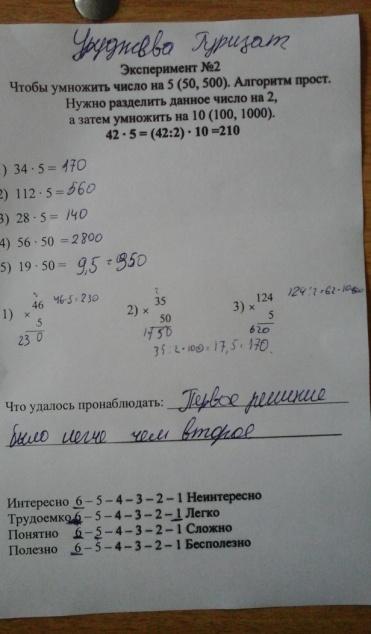 Эксперимент №2
Чтобы умножить число на 5 (50, 500). Алгоритм прост.
Нужно разделить данное число на 2,
а затем умножить на 10 (100, 1000).
42 · 5 = (42:2) · 10 =210
) 34 · 5 = 170
2) 112 · 5 = 560
3) 28 · 5 = 140
4) 56 · 50 = 2800
5) 19 · 50 = 9,5 = 950
1) × 46 5 230 46·5=230
2) × 35 50 1750
3) × 124 5 620
Что удалось пронаблюдать: Первое решение
было легче чем второе
Интересно 6 – 5 – 4 – 3 – 2 – 1 Неинтересно
Трудоемко 6 – 5 – 4 – 3 – 2 – 1 Легко
Понятно 6 – 5 – 4 – 3 – 2 – 1 Сложно
Полезно 6 – 5 – 4 – 3 – 2 – 1 Бесполезно